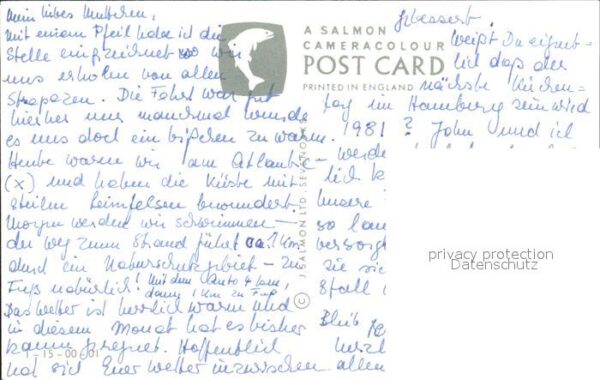 Mein liebes Muttchen,
mit einem Pfeil habe ich die
Stelle eingezeichnet wo wir
uns erholen von allen
Strapazen. Die Fahrt war gut
hierher nur manchmal wurde
es uns doch ein bißchen zu warm.
Heute waren wir am Atlantik
(x) und haben die Küste mit
steilen Steinfelsen bewundert
Morgen werden wir schwimmen –
der Weg zum Strand führt ca. 1 km
durch ein Naturschutzgebiet – zu
Fuß natürlich! Mit dem Auto 4 km,
dann 1 km zu Fuß
Das Wetter ist herrlich warm und
in diesem Monat hat es bisher
kaum geregnet. Hoffentlich
hat sich Euer Wetter inzwischen
gebessert.
A SALMON
CAMERACOLOUR
POST CARD
PRINTED IN ENGLAND
© J. SALMON LTD. SEVENOAKS
Weißt Du eigent-
lich daß der
nächste Kirchen-
tag in Hamburg sein wird
1981? John und ich
werde
lich
Unsere
so lan
versorg
Sie sic
Stall
Bleib
herzl
allen
privacy protection
Datenschutz
1-15-00-01